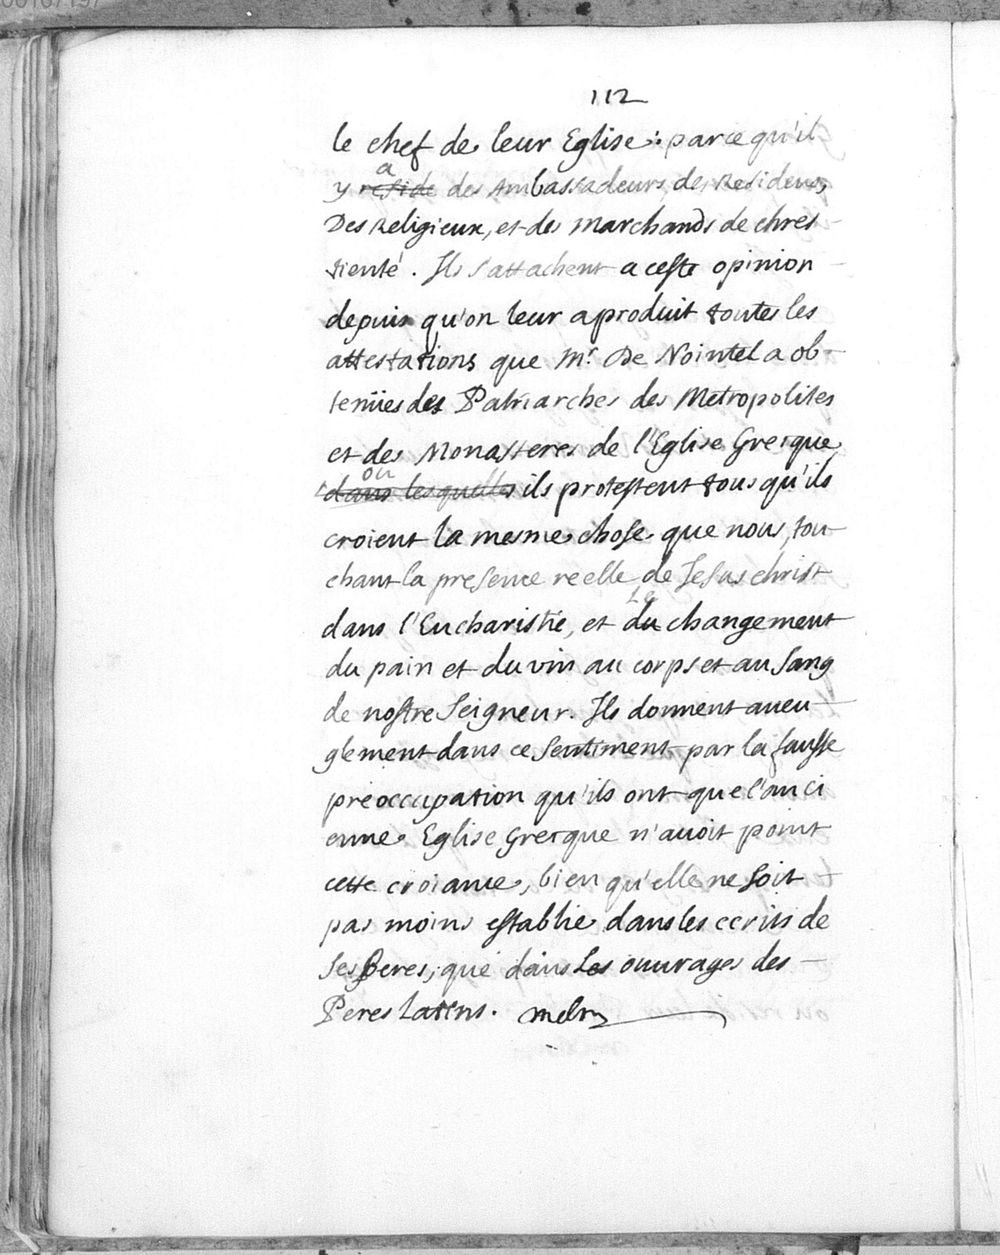 112
le chef de leur Eglise: parce qu'il
a
y reside des Ambassadeurs, des Residens,
Des Religieux, et des marchands de chres-
tienté. Ils s'attachent a ceste opinion
depuis qu'on leur a produit toutes les
attestations que Mr. De Nointel a ob-
tenües des Patriarches des Metropolites
et des Monasteres de l'Eglise Grecque
ou
dans lesquelles ils protestent tous qu'ils
croient la mesme chose que nous, tou-
chant la presence reelle de Jesus christ
Le
dans l'Eucharistie, et du changement
du pain et du vin au corps et au sang
de nostre Seigneur. Ils donnent aueu-
glement dans ce sentiment par la fausse
préoccupation qu'ils ont que l'anci
enne Eglise Grecque n'auoit point
cette croiance, bien qu'elle ne soit
pas moins establie dans les ecrits de
ses Peres, que dans Les ouurages des
Peres Latins.